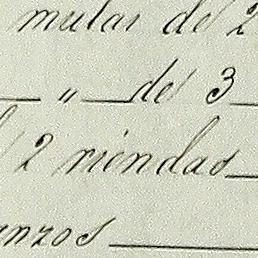 mulas de 2
" de 3
2 riendas
nzos